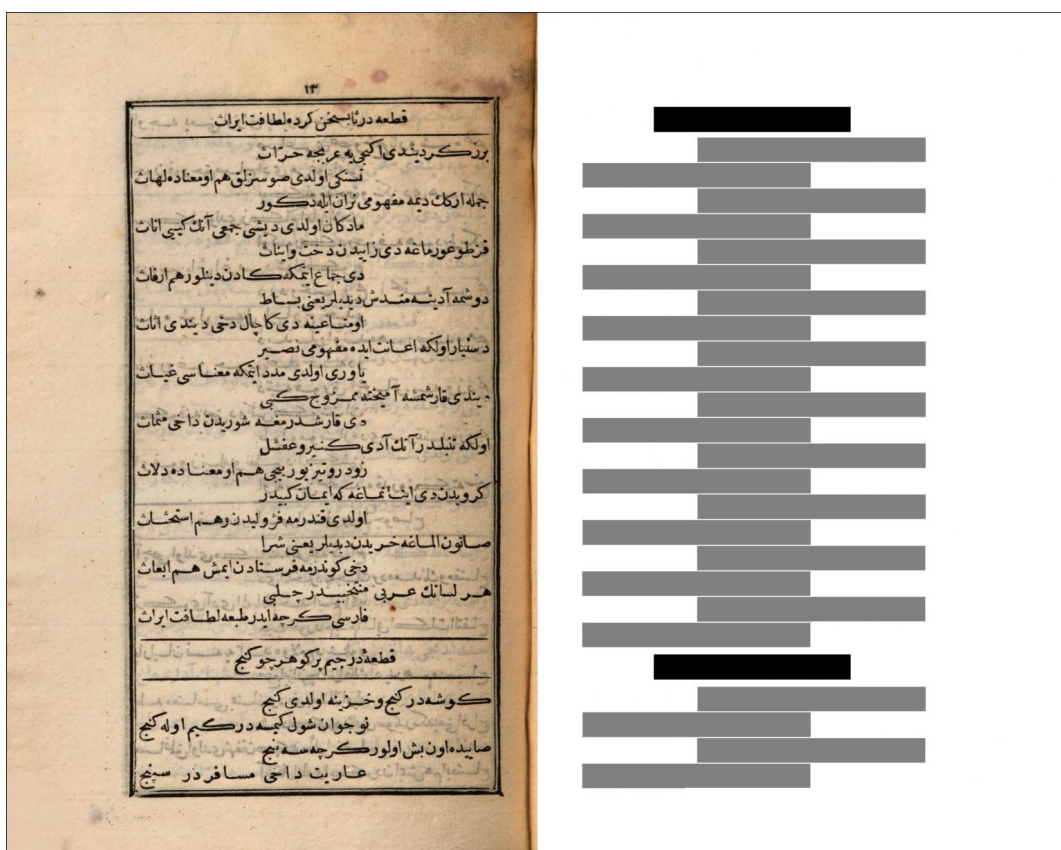 ١٣
قطعه در ثا بسخن كرده لطافت ايراث
برزكر ديندى اكنجى يه عربجه حرّاث
تشنكى اولدى صوسزلق هم او معناده لهاث
جمله اركك ديمه مفهومى نران ايله ذكور
مادكان اولدى ديشى جمعى آنك كيبى اناث
قز طوغورماغه دى زاييدن دخت و ايناث
دى جماع ايتمكه كادن دينلور هم ارفاث
دوشمه آدينه مندش ديديلر يعنى بساط
او متاعينه دى كاچال دخى ديندى اثاث
دستيار اولكه اعانت ايده مفهومى نصير
ياورى اولدى مدد ايتمكه معناسى غياث
ديندى قارشمشه آميخته ممزوج كبى
دى قارشدرمغه شوريدن داخى مثماث
اولكه تنبلدر آنك آدى كنبر و عفشل
زود رو تيز يوريجى هم او معناده دلاث
كرويدن دى اينانماغه كه ايمان كبيدر
اولدى قندرمه فژوليدن و هم استحثاث
صاتون الماغه خريدن ديديلر يعنى شرا
دخى كوندرمه فرستادن ايمش هم ابعاث
هر لسانك عربى منتخبيدر چلبى
فارسى كرچه ايدر طبعه لطافت ايراث
قطعهٔ در جيم پر كوهر چو كنج
كوشه در كنج و خزينه اولدى كنج
نوجوان شول كيمسه در كيم اوله كنج
صاييده اون بش اولور كرچه سه پنج
عاريت داخى مسافردر سپنج